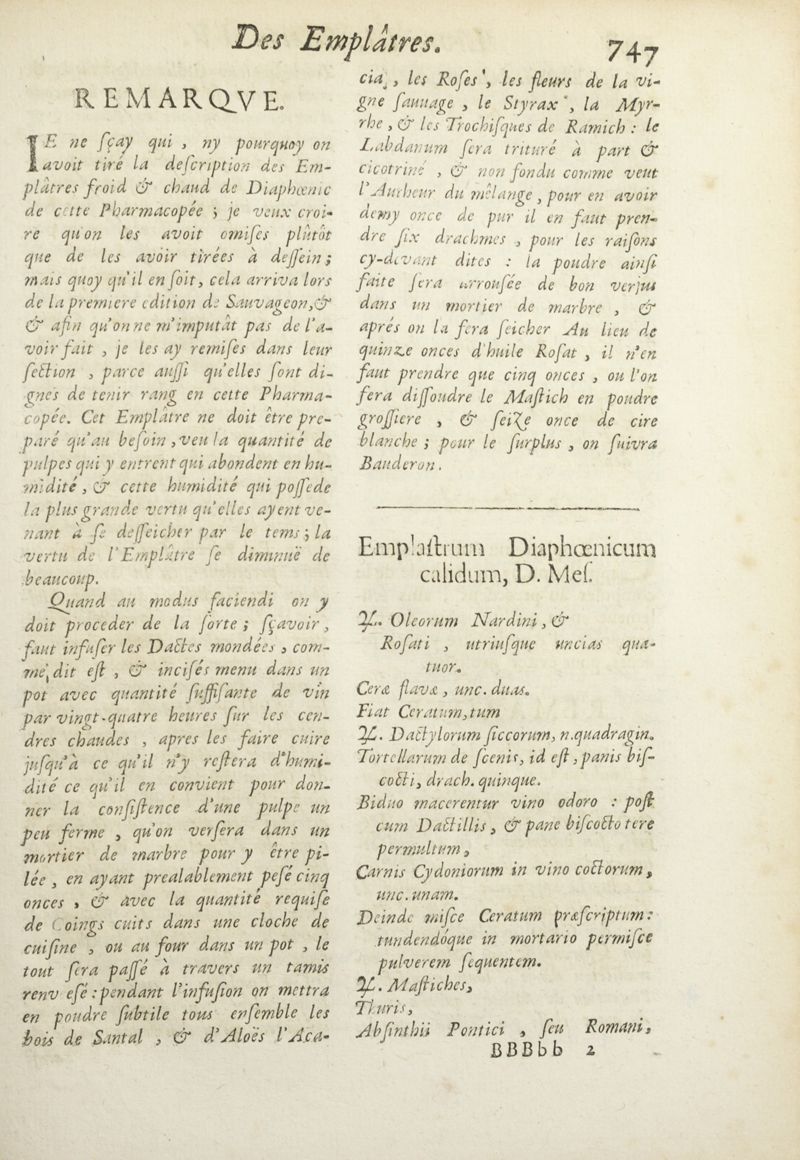 Des Emplâtres.
747
REMARQVE.
IE ne sçay qui , ny pourquoy on
avoit tiré la description des Em-
plâtres froid & chaud de Diaphœnic
de cette Pharmacopée ; je veux croi-
re qu'on les avoit omises plûtôt
que de les avoir tirées à dessein ;
mais quoy qu'il en soit, cela arriva lors
de la premiere edition de Sauvageon,&
& afin qu'on ne m'imputât pas de l'a-
voir fait , je les ay remises dans leur
section , parce aussi qu'elles sont di-
gnes de tenir rang en cette Pharma-
copée. Cet Emplâtre ne doit être pre-
paré qu'au besoin , veu la quantité de
pulpes qui y entrent qui abondent en hu-
midité , & cette humidité qui possede
la plus grande vertu qu'elles ayent ve-
nant à se desseicher par le tems ; la
vertu de l'Emplâtre se diminuë de
beaucoup.
Quand au modus faciendi on y
doit proceder de la sorte ; sçavoir ,
faut infuser les Dactes mondées , com-
me dit est , & incisés menu dans un
pot avec quantité suffisante de vin
par vingt-quatre heures sur les cen-
dres chaudes , apres les faire cuire
jusqu'à ce qu'il n'y restera d'humi-
dité ce qu'il en convient pour don-
ner la consistence d'une pulpe un
peu ferme , qu'on versera dans un
mortier de marbre pour y être pi-
lée , en ayant prealablement pesé cinq
onces , & avec la quantité requise
de Coings cuits dans une cloche de
cuisine , ou au four dans un pot , le
tout sera passé à travers un tamis
renv ersé : pendant l'infusion on mettra
en poudre subtile tous ensemble les
bois de Santal , & d'Aloës l'Aca-
cia , les Roses , les fleurs de la vi-
gne sauuage , le Styrax , la Myr-
rhe , & les Trochisques de Ramich : le
Labdanum sera trituré à part &
cicotriné , & non fondu comme veut
l'Autheur du mêlange , pour en avoir
demy once de pur il en faut pren-
dre six drachmes , pour les raisons
cy-devant dites : la poudre ainsi
faite sera arrousée de bon verjus
dans un mortier de marbre , &
aprés on la sera seicher Au lieu de
quinze onces d'huile Rosat , il n'en
faut prendre que cinq onces , ou l'on
fera dissoudre le Mastich en poudre
grossiere , & seize once de cire
blanche ; pour le surplus , on suivra
Bauderon.
Emplastrum Diaphœnicum
calidum, D. Mes.
℞. Oleorum Nardini , &
Rosati , utriusque uncias qua-
tuor.
Ceræ flavæ , unc. duas.
Fiat Ceratum, tum
℞. Dactylorum siccorum, n.quadragin.
Tortellarum de scenis, id est , panis bis-
cocti, drach. quinque.
Biduo macerentur vino odoro : post
cum Dactillis , & pane biscocto tere
permultum ,
Carnis Cydoniorum in vino coctorum ,
unc. unam.
Deinde misce Ceratum præscriptum :
tundendóque in mortario permisce
pulverem sequentem.
℞. Mastiches,
Thuris,
Absinthii Pontici , seu Romani,
BBBbb 2